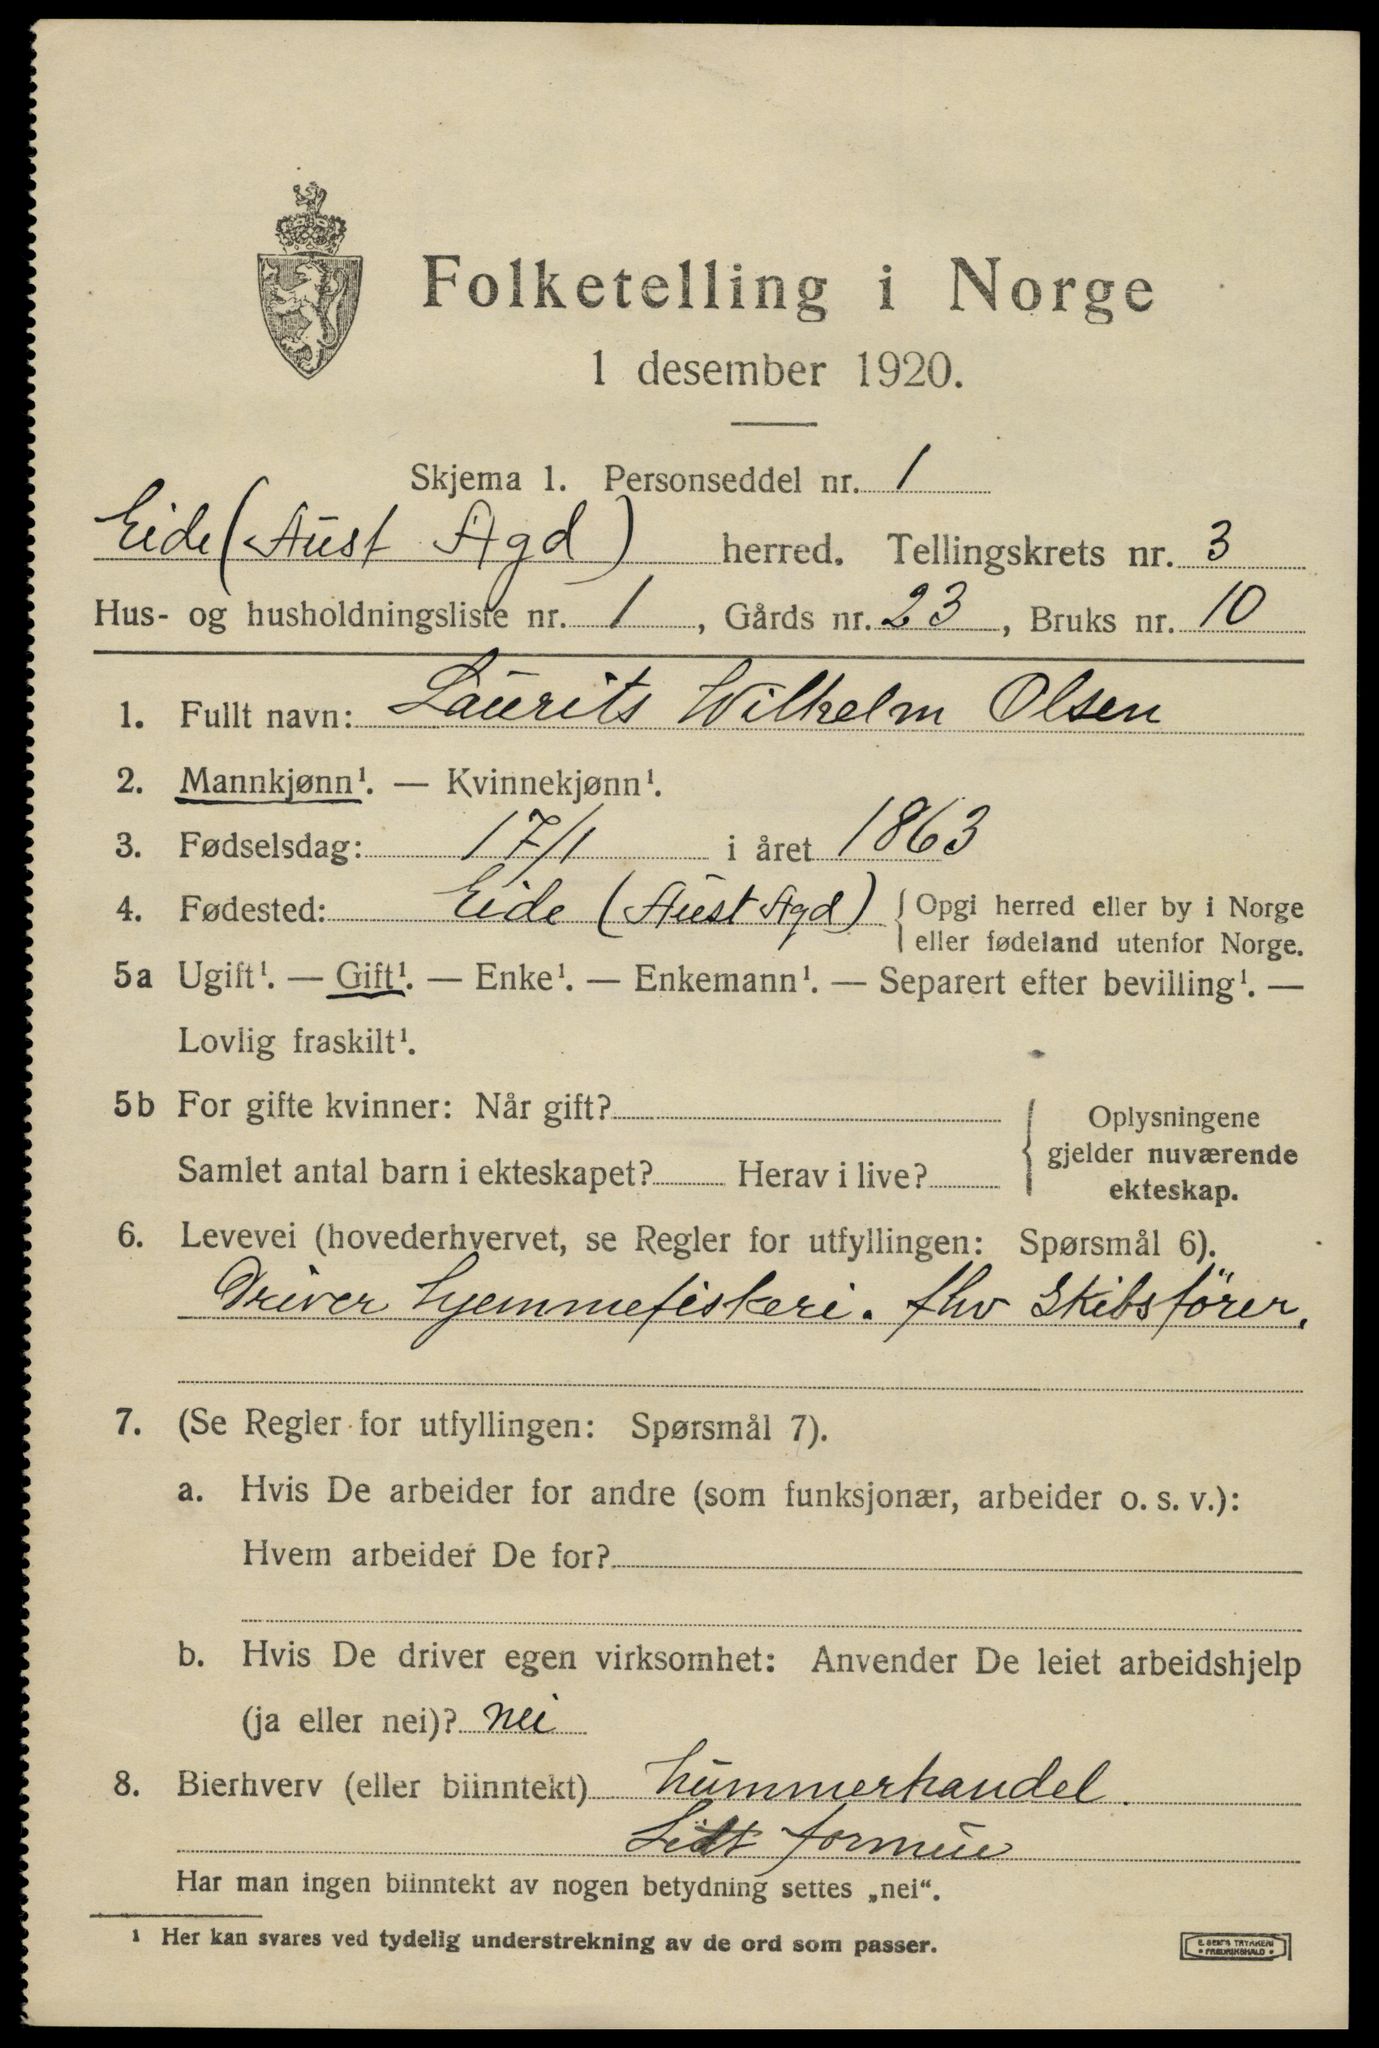 Folketelling i Norge
1 desember 1920.
Skjema 1. Personseddel nr. 1
Eide (Aust Agd) herred. Tellingskrets nr. 3
Hus- og husholdningsliste nr. 1, Gårds nr. 23, Bruks nr. 10
1. Fullt navn: Laurits Wilhelm Olsen
2. Mannkjønn¹. — Kvinnekjønn¹.
3. Fødselsdag: 17/1 i året 1863
4. Fødested: Eide (Aust Agd) { Opgi herred eller by i Norge
eller fødeland utenfor Norge.
5a Ugift¹. — Gift¹. — Enke¹. — Enkemann¹. — Separert efter bevilling¹. —
Lovlig fraskilt¹.
5b For gifte kvinner: Når gift?
Samlet antal barn i ekteskapet? Herav i live?
Oplysningene
gjelder nuværende
ekteskap.
6. Levevei (hovederhvervet, se Regler for utfyllingen: Spørsmål 6).
Driver hjemmefiskeri. fhv Skibsförer.
7. (Se Regler for utfyllingen: Spørsmål 7).
a. Hvis De arbeider for andre (som funksjonær, arbeider o. s. v.):
Hvem arbeider De for?
b. Hvis De driver egen virksomhet: Anvender De leiet arbeidshjelp
(ja eller nei)? nei
8. Bierhverv (eller biinntekt) hummerhandel.
Lidt formue
Har man ingen biinntekt av nogen betydning settes „nei“.
¹ Her kan svares ved tydelig understrekning av de ord som passer.
E. SEM'S TRYKKERI
• FREDRIKSHALD •